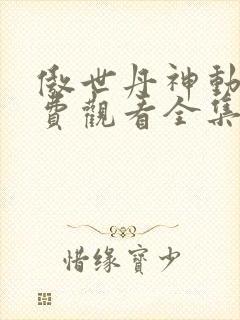 傲世丹神動
費觀看全集
惜缘寶少